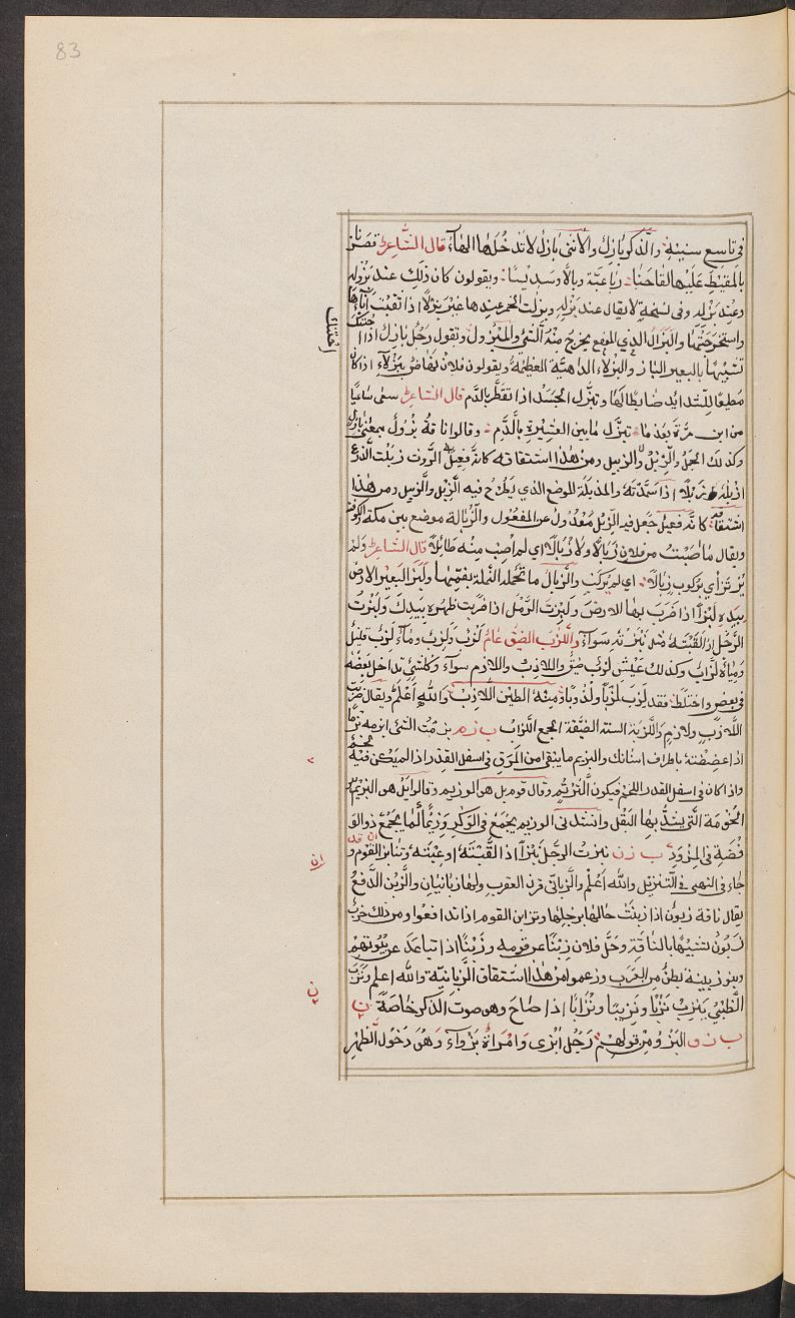 83
في تاسع سنينه والذكر بازل والانثى بازل لا تدخلها الهاء قال الشاعر
بالمقيظ عليها القاحنا رباعية وبازلا وسديسا ويقولون كان ذلك عند بزوله
وعند بزله وفي نسخة لا يقال عند بزله وبزلت الخمر غيرها بزلا اذا ثقبت اناءها
واستخرجتها والبزال الذي الموضع يخرج منه الشئ المبزول وتقول رجل بازل اذا احتنك
احتنك
تشبيها بالبعير البازل والبزلاء الداهية العظيمة ويقولون فلان نهاض ببزلاء اذا كان
مطيقا للشدائد ضابطا لها وتبزل الجسد اذا تفطر بالدم قال الشاعر سعى ساعيا
من ابن مرة بعد ما تبزل ما بين العشيرة بالدم وقالوا ناقة بزول بمعنى بازل
وكذلك الجمل والزبل والزبيل ومن هذا اشتقاقه كانه فعيل الروث زبلت الزرع
ازبله زبلا اذا سمدته والمزبلة الموضع الذي يطرح فيه الزبل والزبيل ومن هذا
اشتقاقه كانه فعيل جعل فيه الزبل معدول عن المفعول والزبالة موضع بين مكة والكوفة
ويقال ما اصبت من فلان زبالا ولا زبالا اي لم اصب منه طائلا قال الشاعر ولم
يرتزأي بركوب زبالا اي لم يركب والزبال ما تحمله النملة بفمها ولبز البعير الارض
بيده لبزا اذا ضرب بها الارض ولبزت الرجل اذا ضربت ظهره بيدك ولبزت
الرجل اذا لقبته مثل نبزته سواء واللزب الضيق عام لزب ولزب وماء لزب قليل
ومياه لزاب وكذلك عيش لزب ضيق واللازب واللازم سواء وكل شئ تداخل بعضه
في بعض واختلط فقد لزب لزبا ولزوبا ومنه الطين اللازب والله اعلم ويقال ضربة
اللازب ولازم واللزبة السنة الضيقة الجمع اللزاب ب ز م بزمت الشئ ابزمه بزما
اذا عضضته باطراف اسنانك والبزيم ما يبقى من المرق في اسفل القدر اذا لم يكن فيه لحم
واذا كان في اسفل القدر اللحم فيكون الثرتم وقال قوم بل هو الوزيم وقالوا بل هو البزيم
الخوصة التي يشد بها البقل وانشد في الوزيم يجمع في الوكر وزيما كما يجمع ذو الو
فضة في المزود ب ز ن نبزت الرجل نبزا اذا لقبته او عبته وتنابز القوم و
ان
جاء في النهي في التنزيل والله اعلم والزباني قرن العقرب ولها زبانيان والزبن الدفع
يقال ناقة زبون اذا زبنت حالبها برجلها وتزابن القوم اذا تدافعوا ومن ذلك حرب
زبون تشبيها بالناقة وحل فلان زبنا عن قومه وزبنا اذا تباعد عن بيوتهم
وبنو زبينة بطن من العرب وزعموا من هذا اشتقاق الزبانية والله اعلم ونزب
ن
الظبي ينزب نزبا ونزيبا ونزابا اذا صاح وهو صوت الذكر خاصة
ب ز و البزو من قولهم رجل ابزى وامراة بزواء وهو دخول الظهر